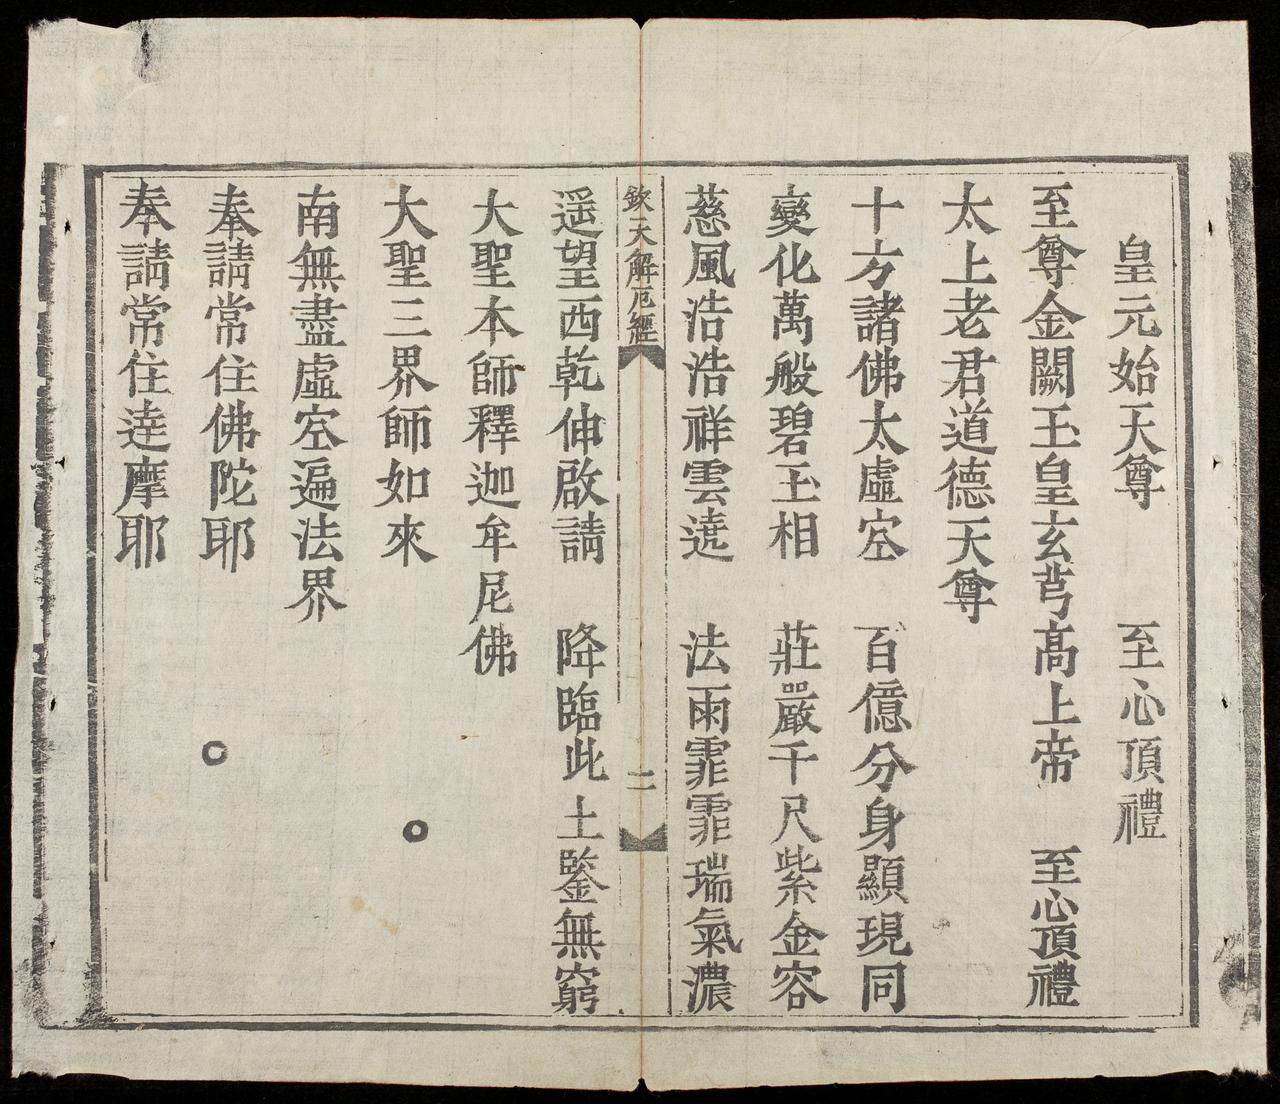 皇元始天尊　至心頂禮
至尊金闕玉皇玄芎高上帝　至心頂禮
太上老君道德天尊
十方諸佛太虛空　百億分身顯現同
變化萬般碧玉相　莊嚴千尺紫金容
慈風浩浩祥雲遶　法雨霏霏瑞氣濃
欽天解厄經　二
遥望西乾伸啟請　降臨此土鑒無窮
大聖本師釋迦牟尼佛
大聖三界師如來
南無盡虛空遍法界
奉請常住佛陀耶
奉請常住達摩耶